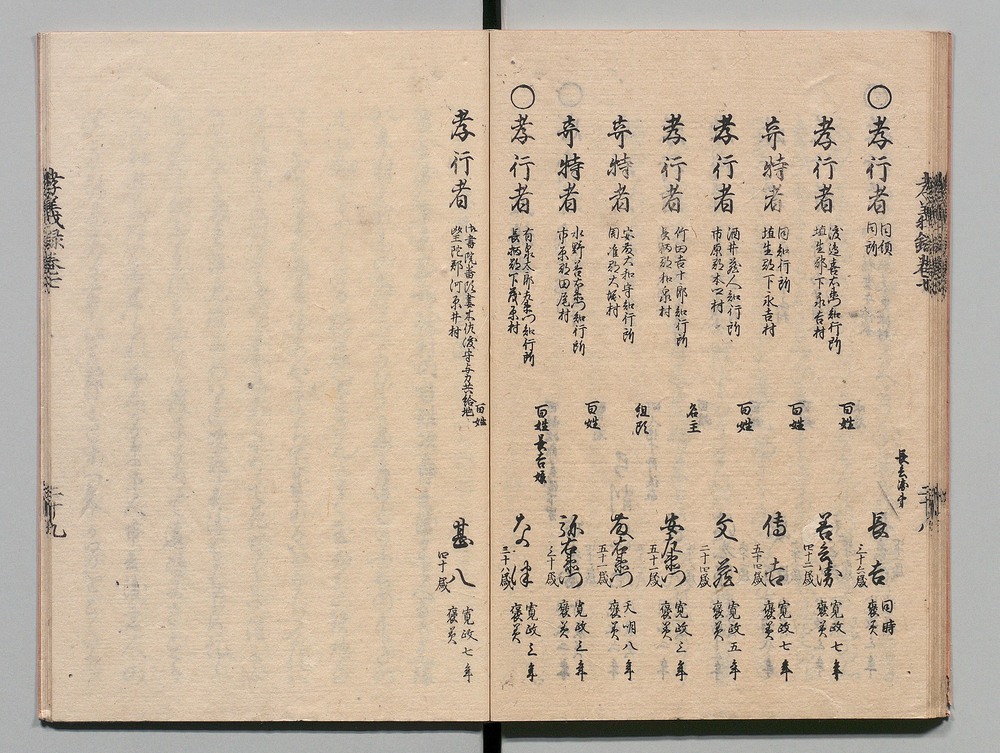 孝義録巻七
二十八
○孝行者
同領
同所
長吉
三十六歳
同時
褒美
孝行者
渡辺喜右衛門知行所
埴生郡下永吉村
百姓
四十二歳
寛政七年
褒美
奇特者
同知行所
埴生郡下永吉村
百姓
伝吉
五十四歳
寛政七年
褒美
孝行者
酒井兵人知行所
市原郡
百姓
文蔵
二十四歳
寛政五年
褒美
孝行者
竹田吉十郎知行所
長柄郡和泉村
名主
安左衛門
五十一歳
寛政三年
褒美
奇特者
安藤大和守知行所
周准郡大堀村
組頭
五十一歳
天明八年
褒美
奇特者
水野若右衛門知行所
市原郡田尾村
百姓
弥右衛門
三十歳
寛政三年
褒美
○孝行者
有泉太郎左衛門知行所
長柄郡下茂原村
百姓長吉娘
三十八歳
寛政三年
褒美
孝行者
御書院番頭妻木佐渡守与力共給地
望陀郡河原井村
百姓
甚八
四十歳
寛政七年
褒美
孝義録巻七
二十九